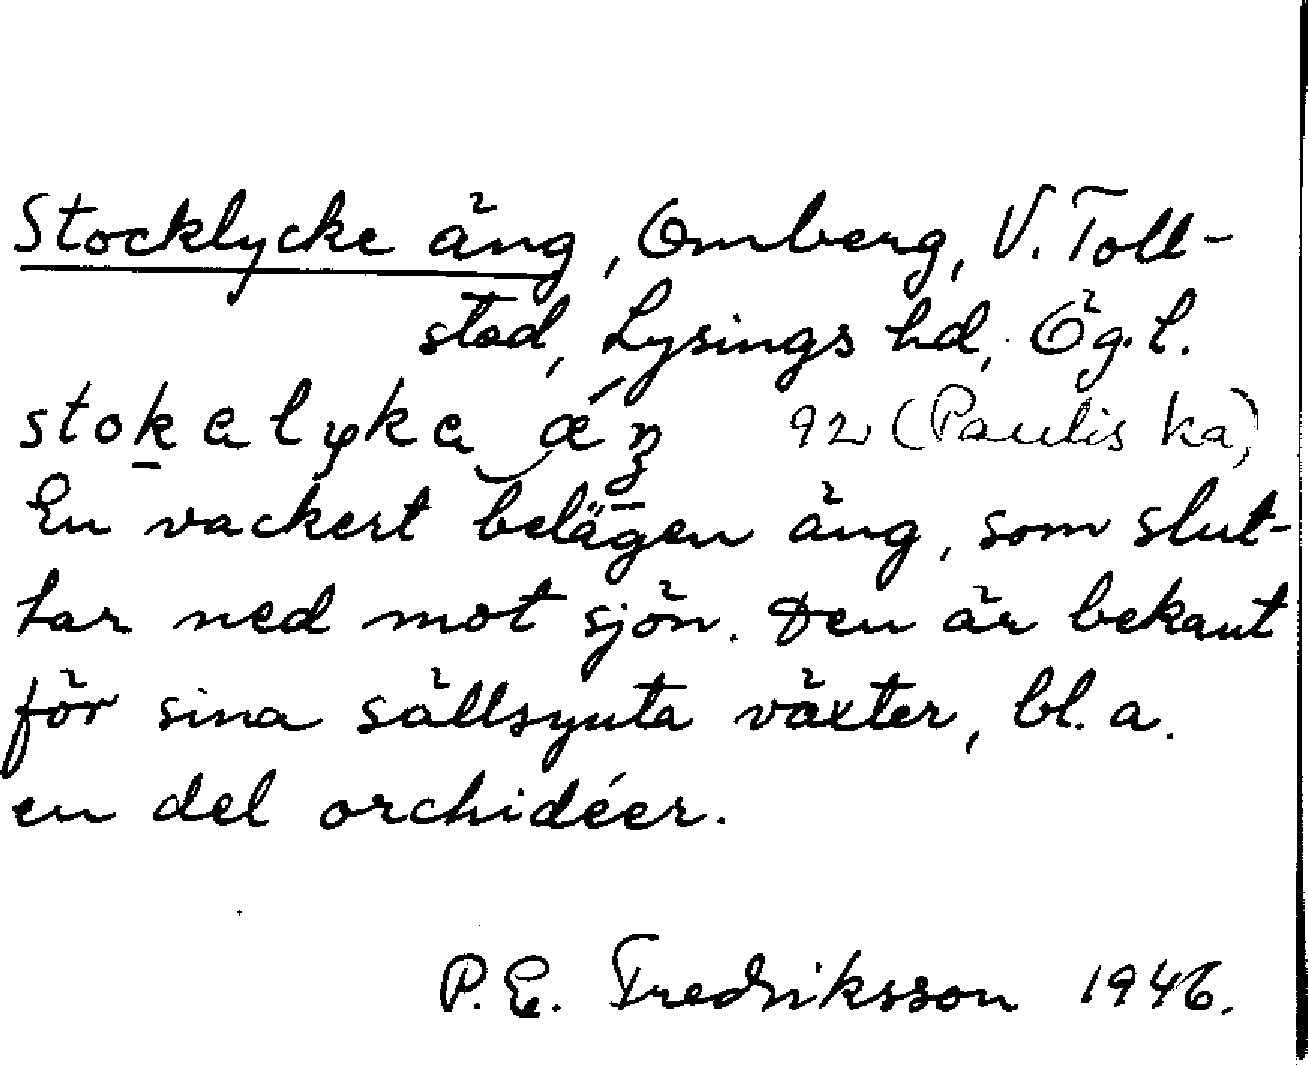 Stocklycke äng, Omberg, V. Toll-
stad, Lysings hd, Ög. l.
92 (Paulis ka)
En vackert belägen äng, som slut-
tar ned mot sjön. Den är bekant
för sina sällsynta växter, bl. a.
en del orchidéer.
P. E. Fredriksson 1946.